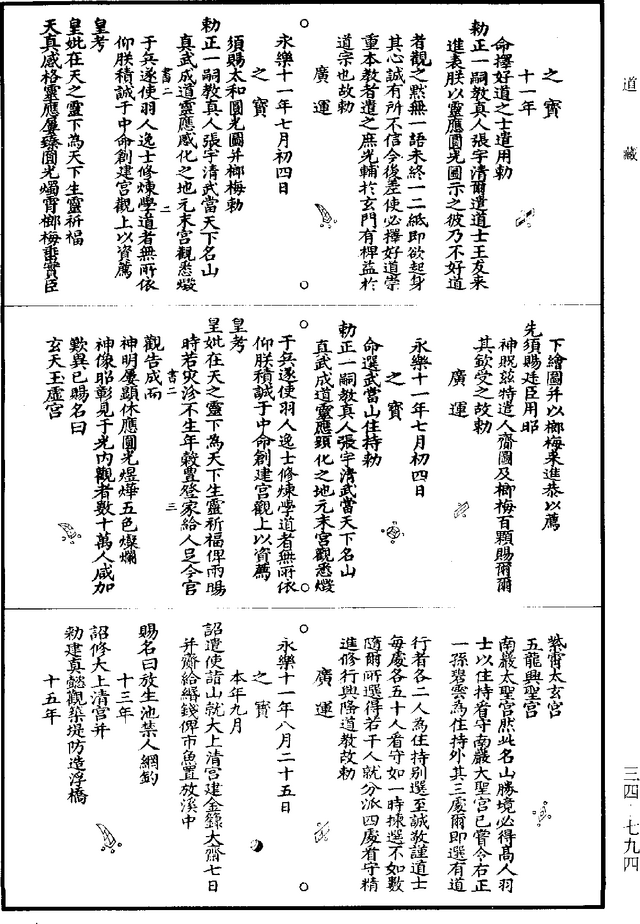 道藏
之寶
十一年
命擇好道之士遣用勑
勑正一嗣教真人張宇清爾遣道士王友來
進表朕以靈應圓光圖示之彼乃不好道
者觀之默無一語未終一二紙即欲起身
其心誠有所不信今後差使必擇好道崇
重本教者遣之庶光輔於玄門有裨益於
道宗也故勑
廣運
永樂十一年七月初四日
之寶
須賜太和圓光圖并榔梅勑
勑正一嗣教真人張宇清武當天下名山
真武成道靈應感化之地元末宮觀悉燬
書二 二
于兵遂使羽人逸士修煉學道者無所依
仰朕積誠于中命創建宮觀上以資薦
皇考
皇妣在天之靈下為天下生靈祈福
天真感格靈應屢臻圓光燭霄榔梅番實臣
下繪圖并以榔梅來進恭以薦
先須賜廷臣用昭
神貺茲特遣人齎圖及榔梅百顆賜爾爾
其欽受之故勑
廣運
永樂十一年七月初四日
之寶
命選武當山住持勑
勑正一嗣教真人張宇清武當天下名山
真武成道靈應顯化之地元末宮觀悉燬
于兵遂使羽人逸士修煉學道者無所依
仰朕積誠于中命創建宮觀上以資薦
皇考
皇妣在天之靈下為天下生靈祈福俾雨暘
時若灾沴不生年穀豐登家給人足今宮
書二 三
觀告成而
神明屢顯休應圓光煜燁五色燦爛
神像昭彰見于光內觀者數十萬人咸加
歎異已賜名曰
玄天玉虛宮
紫霄太玄宮
五龍興聖宮
南巖太聖宮然此名山勝境必得高人羽
士以住持看守南巖大聖宮已嘗令右正
一孫碧雲為住持外其三處爾即選有道
行者各二人為住持別選至誠敬謹道士
每處各五十人看守如一時揀選不如數
隨爾所選得若干人就分派四處看守精
進修行興隆道教故勑
廣運
永樂十一年八月二十五日
之寶
本年九月
詔遣使諸山就大上清宮建金籙大齋七日
并齎給緡錢俾市魚置放溪中
賜名曰放生池禁人網釣
十三年
詔修大上清宮并
勑建真懿觀築堤防造浮橋
十五年
三四·七九四